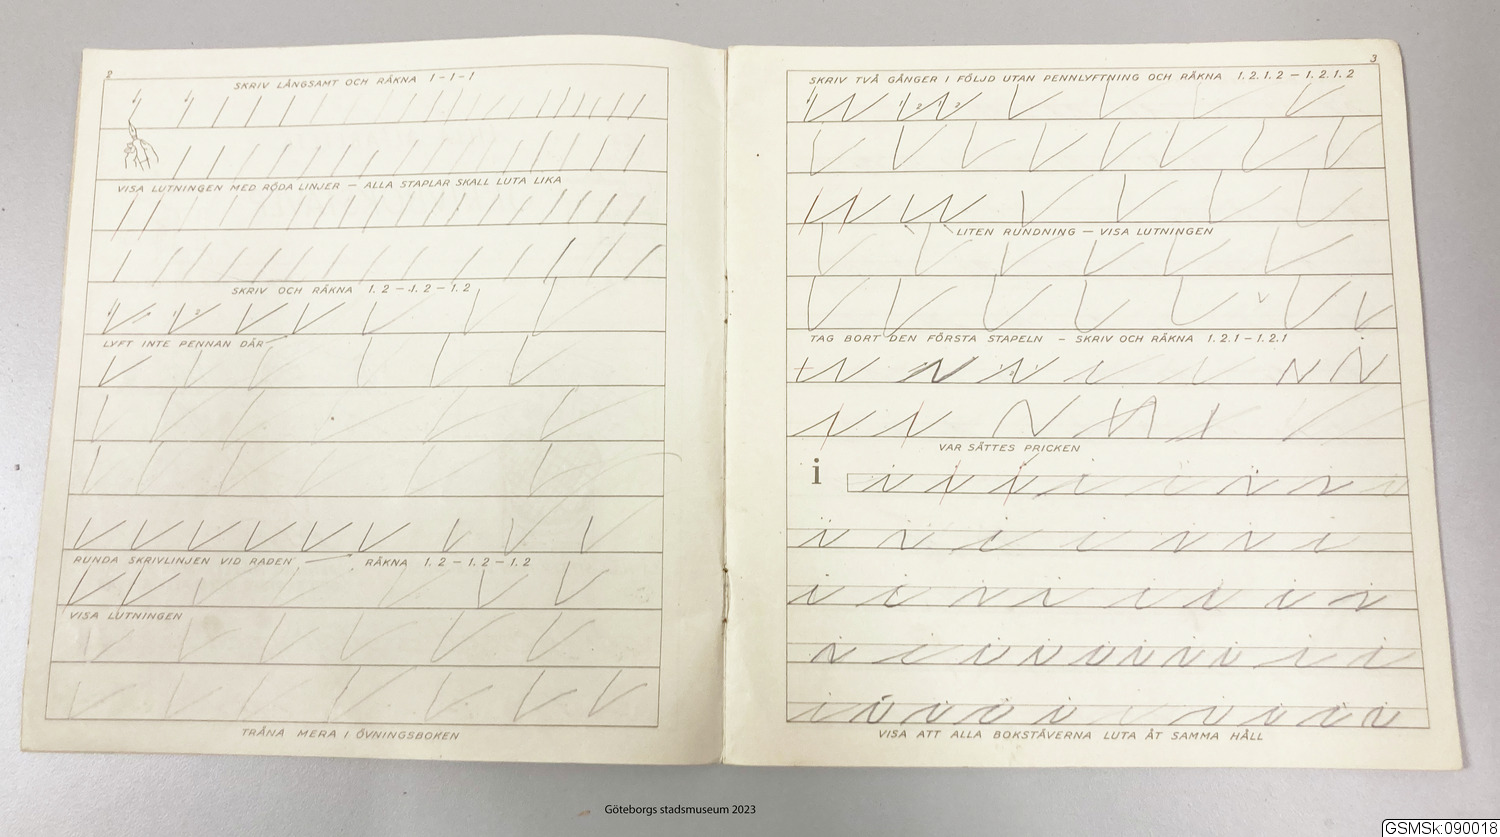 2
SKRIV LÅNGSAMT OCH RÄKNA 1-1-1
VISA LUTNINGEN MED RÖDA LINJER — ALLA STAPLAR SKALL LUTA LIKA
SKRIV OCH RÄKNA 1.2 — 1.2 — 1.2
LYFT INTE PENNAN DÄR
RUNDA SKRIVLINJEN VID RADEN RÄKNA 1.2 — 1.2 — 1.2
VISA LUTNINGEN
TRÄNA MERA I ÖVNINGSBOKEN
3
SKRIV TVÅ GÅNGER I FÖLJD UTAN PENNLYFTNING OCH RÄKNA 1.2.1.2 — 1.2.1.2
LITEN RUNDNING — VISA LUTNINGEN
TAG BORT DEN FÖRSTA STAPELN — SKRIV OCH RÄKNA 1.2.1 — 1.2.1
VAR SÄTTES PRICKEN
i i i i i i i i i i
i i i i i i i
i i i i i i i i
i i i i i i i i i i
i i i i i i i i i i
VISA ATT ALLA BOKSTÄVERNA LUTA ÅT SAMMA HÅLL
Göteborgs stadsmuseum 2023
GSMSk:090018